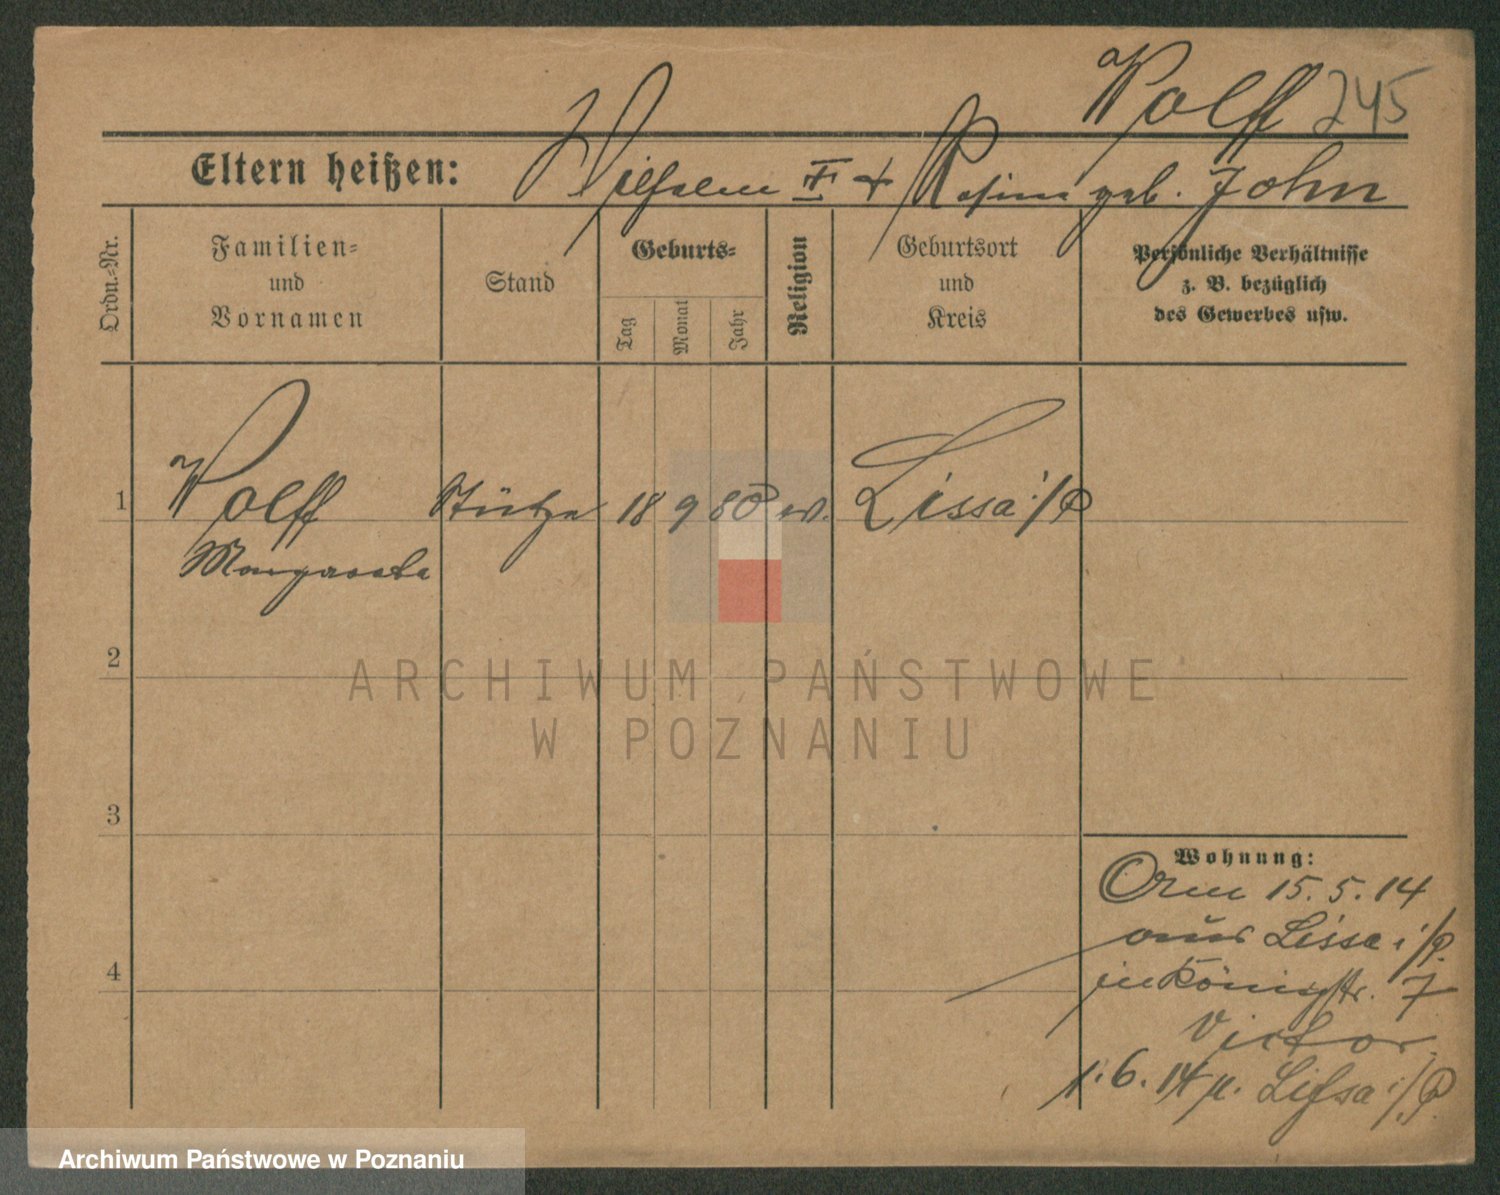 Wolff 245
Eltern heißen: Wilhelm III + Rosina geb. John
Ordn.-Nr.
Familien-
und
Vornamen
Stand
Geburts-
Tag
Monat
Jahr
Religion
Geburtsort
und
Kreis
Persönliche Verhältnisse
z. B. bezüglich
des Gewerbes usw.
1 Wolff Stütze 18 9 80 ev. Lissa i/P
Margareta
2
3
4
Wohnung:
15.5.14
aus Lissa i/P.
in Königstr. 7
Victor
1.6.14 n. Lissa i/P.
ARCHIWUM PAŃSTWOWE
W POZNANIU
Archiwum Państwowe w Poznaniu